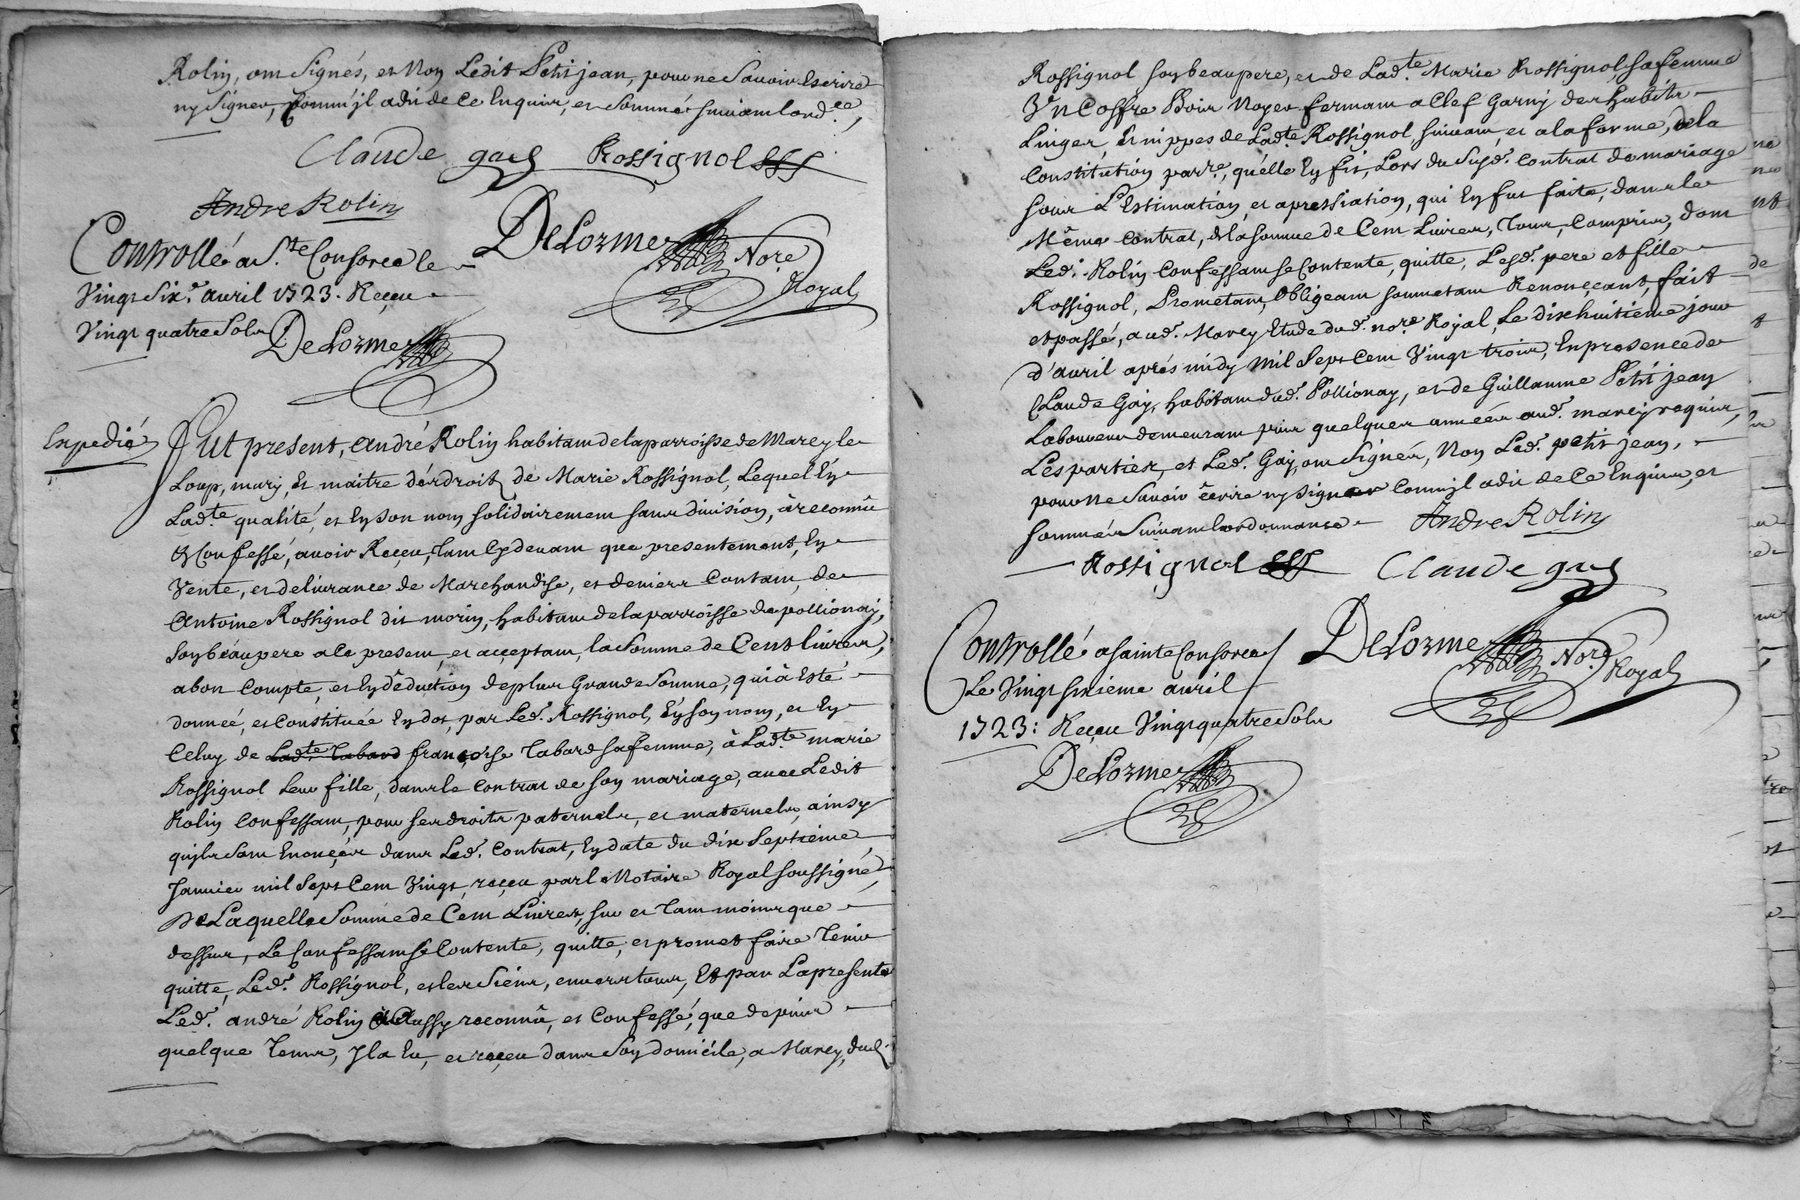 Rolin, ont Signés, et Non Ledit Petit jean, pour ne Savoir Escrire
ny Signer, Comm'jl a dit de Ce Enquis, et Sommé suivant lord.ce,
Claude gay Rossignol
Andre Rolin
DeLorme Nore. Royal
Controllé a S.te Consorce le
Vingt Six.e avril 1723. Reçeu
Vingt quatre Sols DeLorme
Expedié
Fut present, André Rolin habitant de la parroisse de Marcy le
Loup, mary, et maitre des droitz de Marie Rossignol, Lequel En
Lad.te qualité, et En son nom solidairement sans division, à reconnû
& Confessé, avoir Reçeu, Tant Cy devant que presentement, En
Vente, et delivrance de Marchandise, et deniers Contant, de
Antoine Rossignol dit morin, habitant de la parroisse de pollionay,
Son béaupere a Ce present, et acçeptant, la Somme de Cent livres,
a bon Compte, et En déduction de plus Grande Somme, qui à Esté
donneé, et Constituée En dot, par Led.t Rossignol, En son nom, et En
Celuy de Lad.te Tabard françoise Tabard sa femme, à Lad.te marie
Rossignol Leur fille, dans le Contrat de son mariage, avec Ledit
Rolin Confessant, pour ses droits paternels, et maternels, ainsy
qu'jls sont Enonçés dans Led.t Contrat, En date du dix Septiéme
Janvier mil Sept Cent Vingt, reçeu par le Notaire Royal soussigné,
De Laquelle Somme de Cent Livres, sur et Tant moins que
dessus, Le Confessant se Contente, quitte, et promet faire Tenir
quitte, Led.t Rossignol, et les Siens, envers tous, Et par La presente
Led.t andré Rolin à Aussy reconnû, et Confessé, que depuis
quelque Tems, Jl a Eu, et reçeu dans Son domicile, a Marcy, dud.t
Rossignol son beaupere, et de Lad.te Marie Rossignol, sa femme
Un Coffre Bois Noyer fermant a Clef Garny des habits
Linges, Et nippes de Lad.te Rossignol suivant, et a la forme, de la
Constitution par.re, qu'elle En fit, Lors du Susd.t Contrat de mariage
sour L'Estimation, et apressiation, qui En fut faite, dans le
Même Contrat, de la somme de Cent Livres, Tout, Compris, dont
Led.t Rolin Confessant se Contente, quitte, Lesd.ts pere et fille
Rossignol, Prometant, Obligeant soumetant Renonçant, fait
et passé, aud.t Marcy Etude dud.t nore Royal, Le dix huitieme jour
d'avril aprés midy Mil Sept Cent Vingt trois, En presence de
Claude Gay, habitant dud.t Pollionay, et de Guillaume Petit jean
Laboureur demeurant puis quelques anneés aud.t marcy requis,
Les parties, et Led.t Gay, ont Signés, Non Led.t petit jean,
pour ne Savoir écrire ny signer Comm'jl a dit de Ce Enquis, et
sommé Suivant lordonnance Andre Rolin
Rossignol Claude gay
Controllé a Sainte Consorce
Le Vingt sixieme avril
1723: Reçeu Vingt quatre Sols
DeLorme
DeLorme Nore Royal